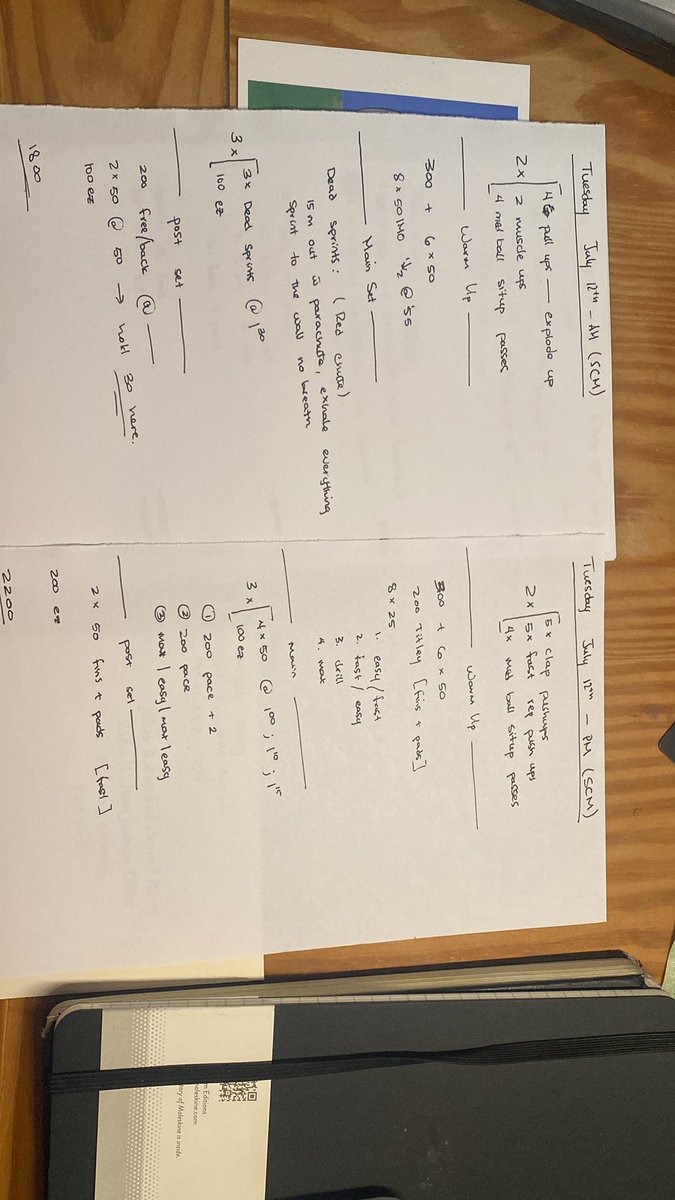 Tuesday July 12th - AM (SCM)
2x 4 pull ups — explode up
2 muscle ups
4 med ball situp passes
Warm Up
300 + 6 x 50
8 x 50 IMO @ 55
Main Set
Dead Sprints: (Red chute)
15m out w parachute, exhale everything
Sprint to the wall no breath
3 x 3 x Dead Sprints @ 1³⁰
100 ez
post set
200 free/back @
2 x 50 @ 50 → hold 30 here.
100 ez
1800
Tuesday July 12th - PM (SCM)
2x 5x clap pushups
5x fast rep push ups
4x med ball situp passes
Warm Up
300 + 6 x 50
200 Titley [fins + pads]
8 x 25
1. easy/fast
2. fast/easy
3. drill
4. max
Main
3 x 4 x 50 @ 1⁰⁰; 1¹⁰; 1¹⁵
100 ez
① 200 pace + 2
② 200 pace
③ max/easy/max/easy
post set
2 x 50 fins + pads [fast]
200 ez
2200
Editions
oleskine.com
ory of Moleskine is inside.